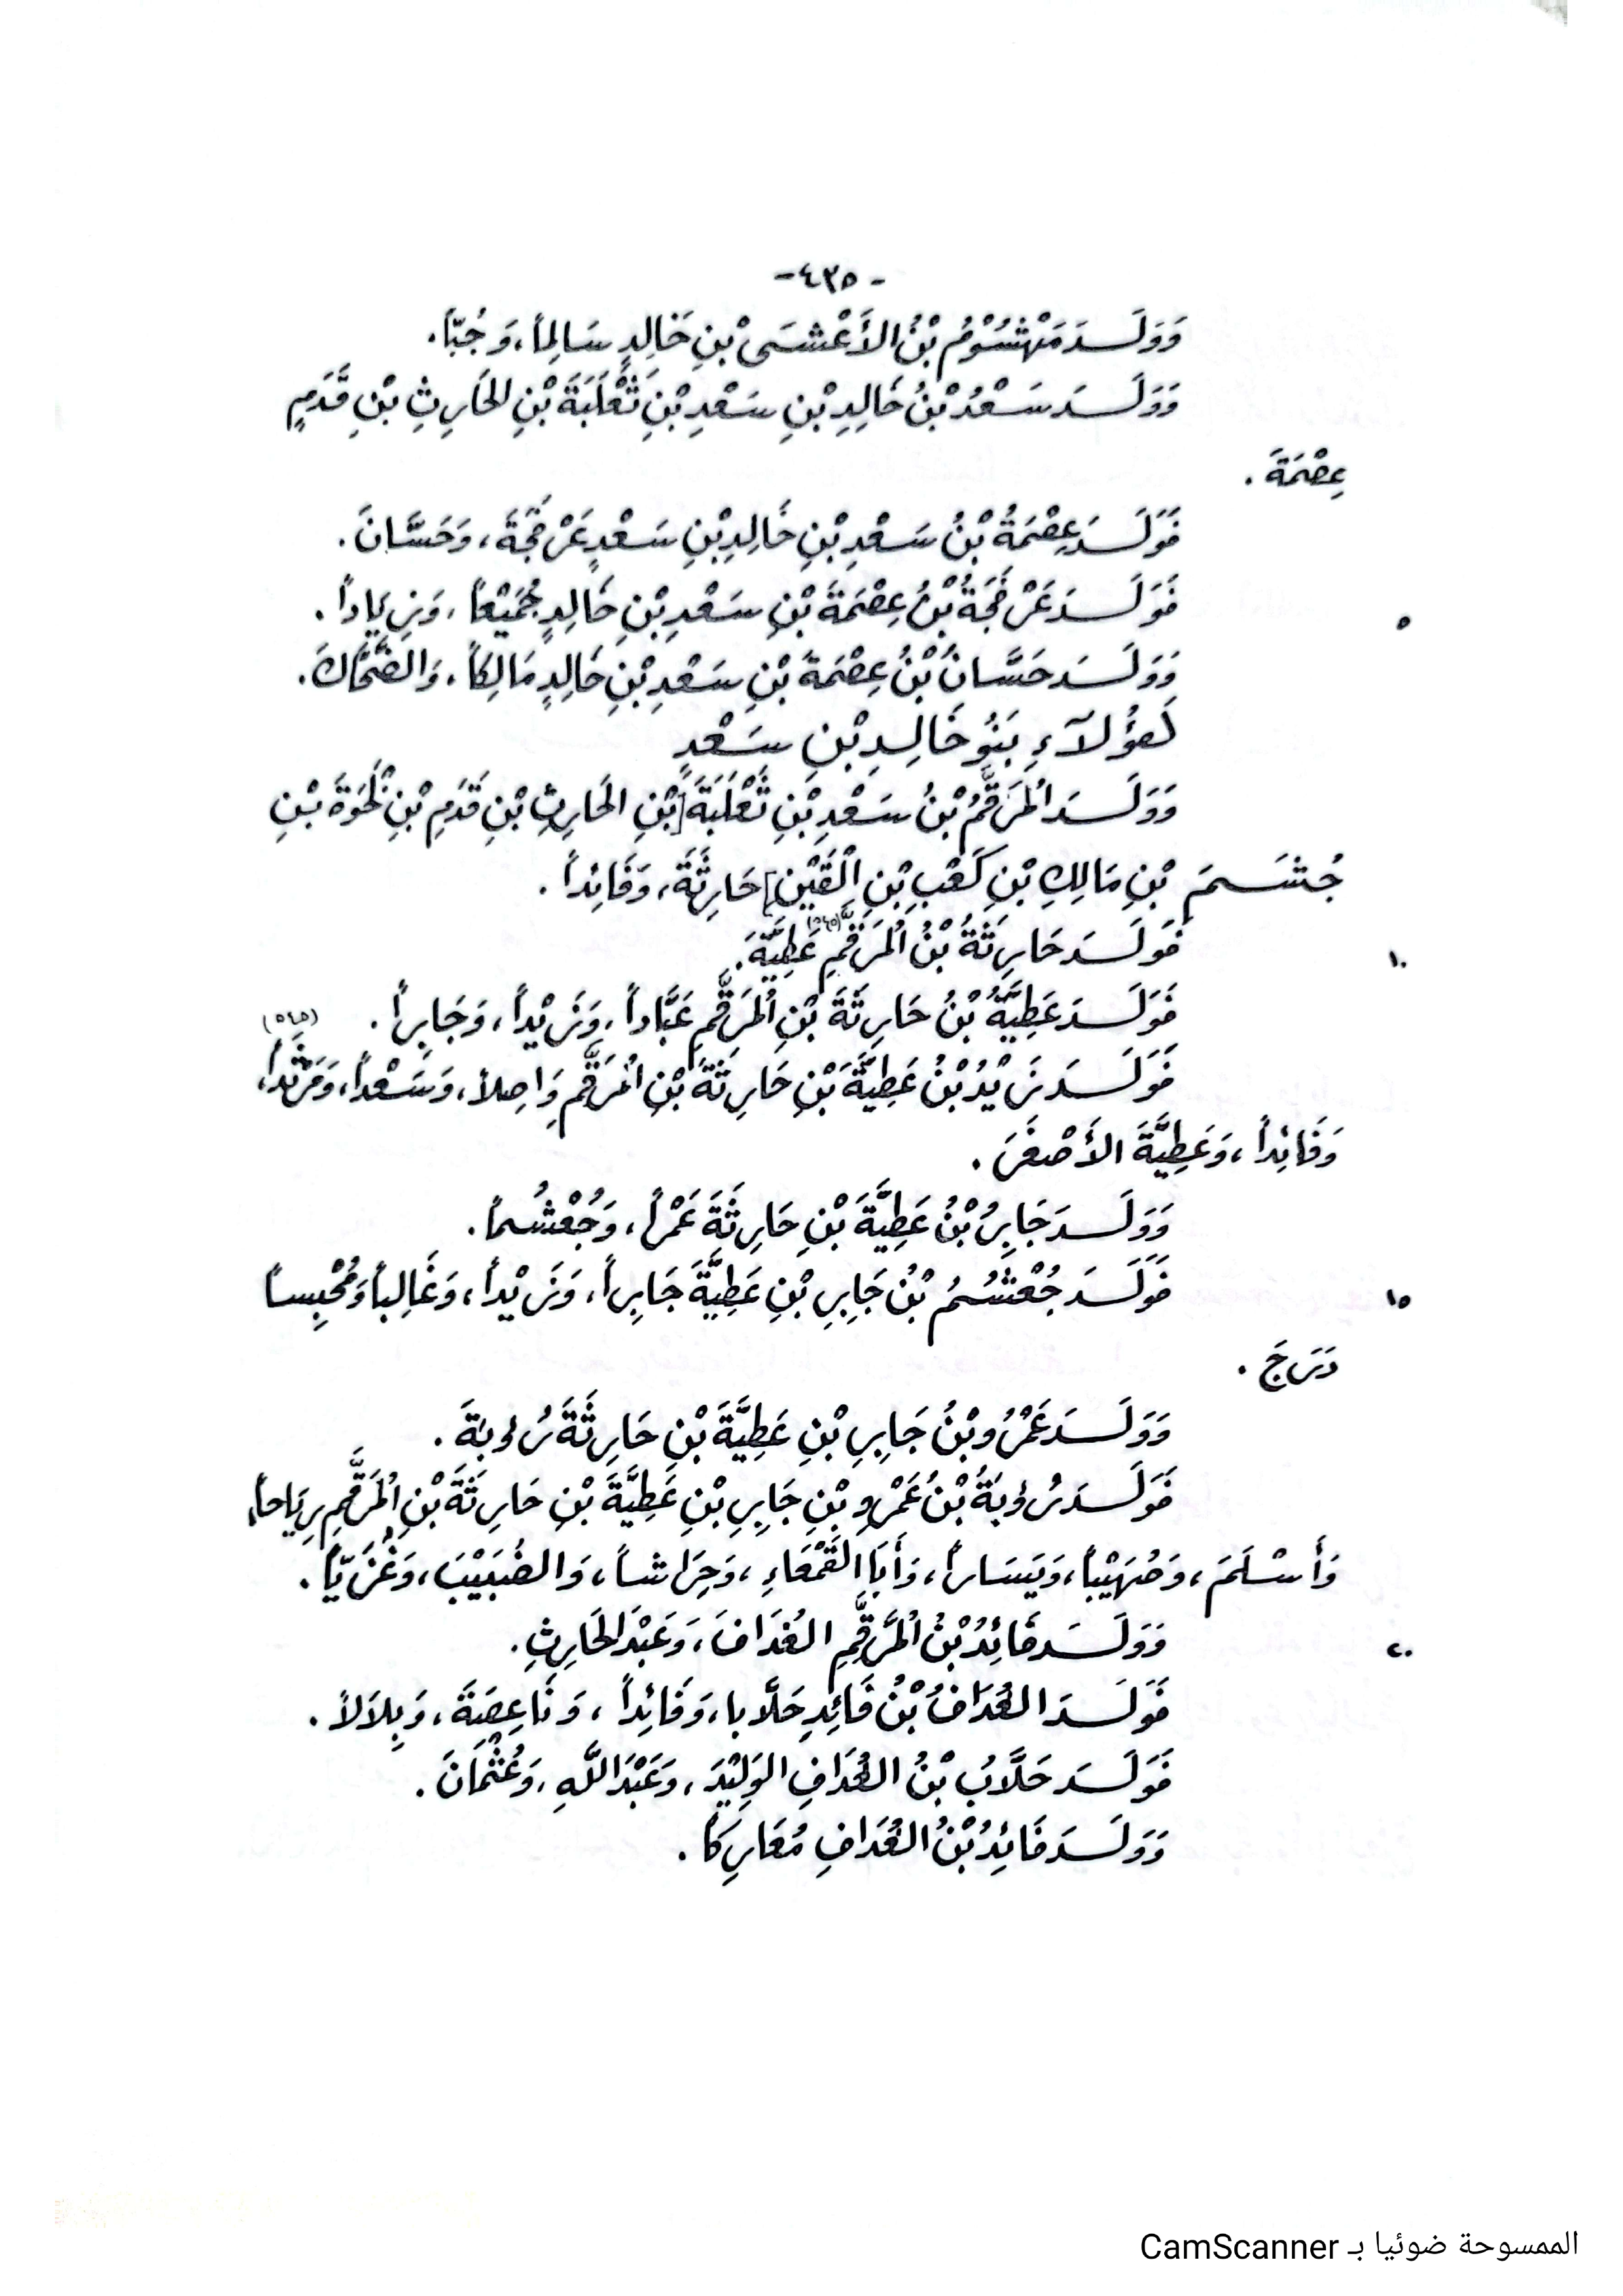 -٤٣٥-
وَوَلَـدَ مَهْشُوْمُ بْنُ الأَعْشَى بْنِ خَالِدٍ سَالِماً، وَجُبّاً.
وَوَلَـدَ سَعْدُ بْنُ خَالِدِ بْنِ سَعْدِ بْنِ ثَعْلَبَةَ بْنِ الحَارِثِ بْنِ قَدَمٍ
عِصْمَةَ.
فَوَلَـدَ عِصْمَةُ بْنُ سَعْدِ بْنِ خَالِدِ بْنِ سَعْدٍ عَرْفَجَةَ، وَحَسَّانَ.
٥ فَوَلَـدَ عَرْفَجَةُ بْنُ عِصْمَةَ بْنِ سَعْدِ بْنِ خَالِدٍ جُمَيْعاً، وَزِيَاداً.
وَوَلَـدَ حَسَّانُ بْنُ عِصْمَةَ بْنِ سَعْدِ بْنِ خَالِدٍ مَالِكاً، وَالضَّحَّاكَ.
لَهؤُلآءِ بَنُو خَالِدِ بْنِ سَعْدٍ
وَوَلَـدَ المُرَقَّمُ بْنُ سَعْدِ بْنِ ثَعْلَبَةَ [بْنِ الحَارِثِ بْنِ قَدَمِ بْنِ لَحْوَةَ بْنِ
جُشَـمَ بْنِ مَالِكِ بْنِ كَعْبِ بْنِ الْقَيْنِ] حَارِثَةَ، وَفَائِداً.
١٠ فَوَلَـدَ حَارِثَةُ بْنُ المُرَقَّمِ (٥٤٥) عَطِيَّةَ.
فَوَلَـدَ عَطِيَّةُ بْنُ حَارِثَةَ بْنِ المُرَقَّمِ عَبَّاداً، وَزَيْداً، وَجَابِراً. (٥٤٥)
فَوَلَـدَ زَيْدُ بْنُ عَطِيَّةَ بْنِ حَارِثَةَ بْنِ المُرَقَّمِ وَاصِلاً، وَسَعْداً، وَمَرْثَداً،
وَفَائِداً، وَعَطِيَّةَ الأَصْغَرَ.
وَوَلَـدَ جَابِرُ بْنُ عَطِيَّةَ بْنِ حَارِثَةَ عَمْراً، وَجُعْشُماً.
١٥ فَوَلَـدَ جُعْشُمُ بْنُ جَابِرِ بْنِ عَطِيَّةَ جَابِراً، وَزَيْداً، وَغَالِباً وَمُحْبِساً
دَرَجَ.
وَوَلَـدَ عَمْرُو بْنُ جَابِرِ بْنِ عَطِيَّةَ بْنِ حَارِثَةَ رُؤبَةَ.
فَوَلَـدَ رُؤبَةُ بْنُ عَمْرِو بْنِ جَابِرِ بْنِ عَطِيَّةَ بْنِ حَارِثَةَ بْنِ المُرَقَّمِ رِيَاحاً،
وَأَسْلَمَ، وَصُهَيْباً، وَيَسَاراً، وَأَبَا القَمْعَاءِ، وَحِرَاشاً، وَالضُبَيْبَ، وَغُزَيّاً.
٢٠ وَوَلَـدَ فَائِدُ بْنُ المُرَقَّمِ الغُدَافَ، وَعَبْدَ الحَارِثِ.
فَوَلَـدَ الغُدَافُ بْنُ فَائِدٍ حَلَّابا، وَفَائِداً، وَنَاعِصَةَ، وَبِلاَلاً.
فَوَلَـدَ حَلَّابُ بْنُ الغُدَافِ الوَلِيْدَ، وَعَبْدَ اللَّهِ، وَعُثْمَانَ.
وَوَلَـدَ فَائِدُ بْنُ الغُدَافِ مُعَارِكاً.
الممسوحة ضوئيا بـ CamScanner